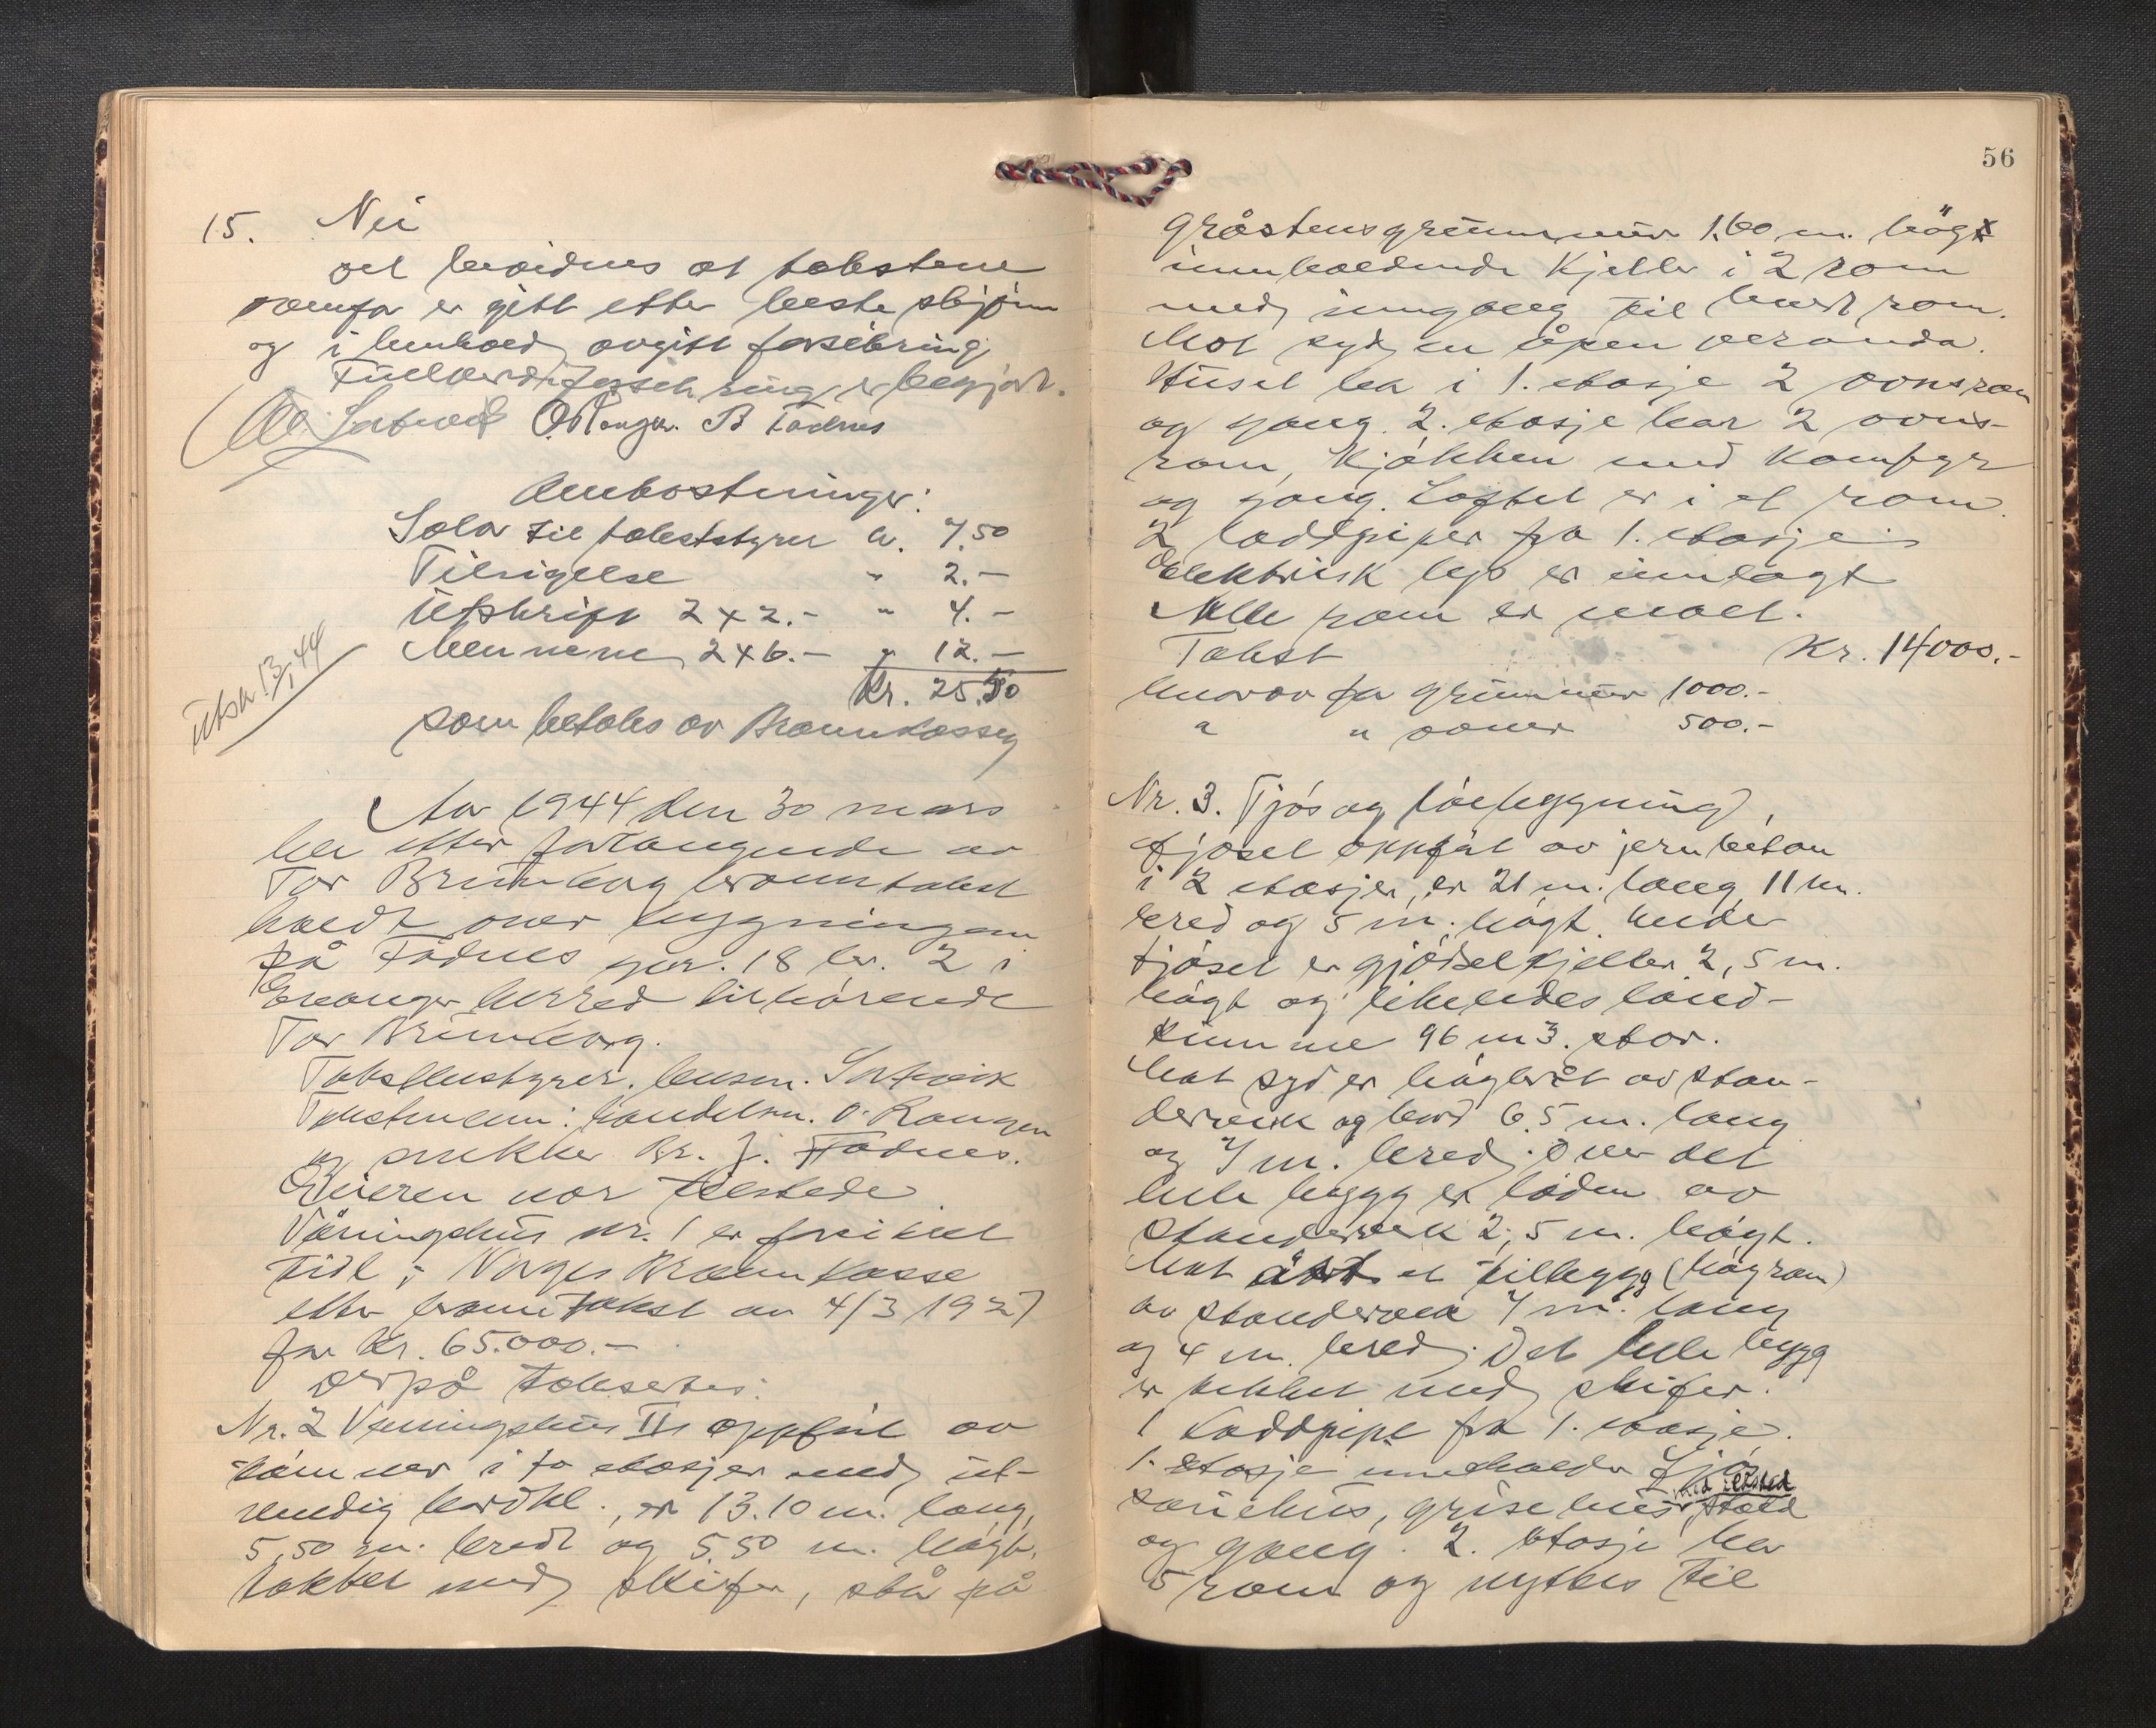 15. Nei
Det bevidnes at takstene
ovenfor er gitt etter beste skjönn
og i henhold avgitt forsikring.
Fullverdiforsikring er begjært.
O. Ronger. B Fodnes
Omkostninger:
Salar til takststyrer kr. 7.50
Tilsigelse " 2.-
Utskrift 2 x 2.- " 4.-
Mennene 2 x 6.- " 12.-
Kr. 25.50
som betales av Brannkassen
Utsk 13/1 44
Aar 1944 den 30 mars
ble etter forlangende av
Tor Brunborg branntakst
holdt over bygningene
på Fodnes gnr. 18 br. 2 i
herred tilhørende
Tor Brunborg.
Takstbestyrer: lensm.
Takstmenn: handelsm. O. Ronger
og snekker Br. J. Fodnes.
Eieren var tilstede
Våningshus nr. 1 er forsikret
tidl. i Norges Brannkasse
etter branntakst av 4/3 1927
for kr. 65.000.-
Derpå takseres:
Nr. 2 Våningshus II oppfört av
tömmer i to etasjer med ut-
vendig bordkl., er 13.10 m. lang,
5,50 m. bredt og 5.50 m. högt,
tekket med skifer, står på
56
gråstensgrunnmur 1.60 m. högt
inneholdende kjeller i 2 rom
med inngang til hvert rom.
Mot syd en åpen veranda.
Huset har i 1. etasje 2 ovnsrom
og gang. 2. etasje har 2 ovns-
rom, kjökken med komfyr
og gang. Loftet er i et rom.
2 loddpiper fra 1. etasje.
Elektrisk lys er innlagt
Alle rom er malt.
Takst Kr. 14000.-
hvorav for grunnmur 1000.-
" " ovner 500.-
Nr. 3. Fjös og löebygning,
fjöset oppfört av jernbeton
i 2 etasjer, er 21 m. lang, 11 m.
bred og 5 m. högt. Under
fjöset er gjödselkjeller 2,5 m.
högt og likeledes land-
kumme 96 m3. stor.
Mot syd er av stan-
derverk og bord 6.5 m. lang
og 7 m. bred. Over det
hele bygg er löden av
standerverk 2,5 m. högt.
Mot öst et tilbygg (högrom)
av standerverk 7 m. lang
og 4 m. bred. Det hele bygg
er tekket med skifer.
1 loddpipe fra 1. etasje.
1. etasje inneholder fjös,
med ildsted
sauehus, grisehus, stall
og gang. 2. etasje har
5 rom og nyttes til